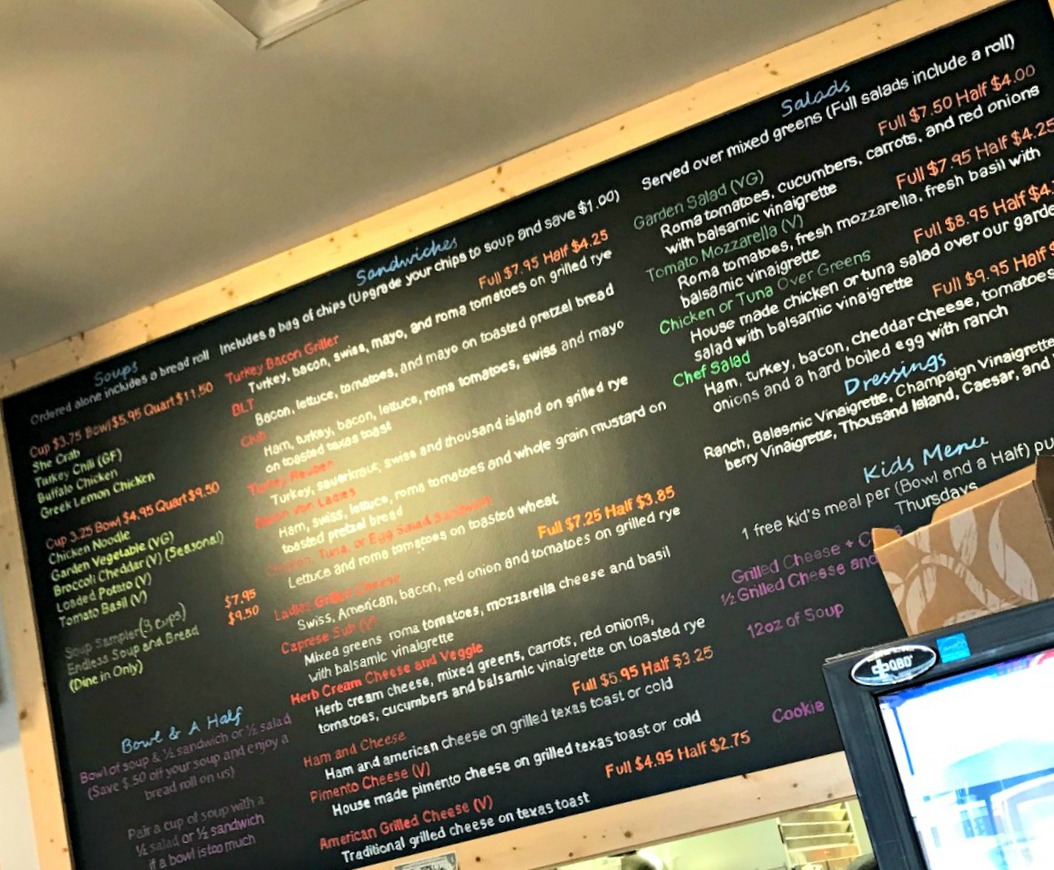 Soups
Ordered alone includes a bread roll
Cup $3.75 Bowl $5.95 Quart $11.50
She Crab
Turkey Chili (GF)
Buffalo Chicken
Greek Lemon Chicken
Cup 3.25 Bowl $4.95 Quart $9.50
Chicken Noodle
Garden Vegetable (VG)
Broccoli Cheddar (V) (Seasonal)
Loaded Potato (V)
Tomato Basil (V)
Soup Sampler (3 cups) $7.95
Endless Soup and Bread $9.50
(Dine in Only)
Bowl & A Half
Bowl of soup & ½ sandwich or ½ salad
(Save $.50 off your soup and enjoy a
bread roll on us)
Pair a cup of soup with a
½ salad or ½ sandwich
if a bowl is too much
Sandwiches
Includes a bag of chips (Upgrade your chips to soup and save $1.00)
Full $7.95 Half $4.25
Turkey Bacon Griller
Turkey, bacon, swiss, mayo, and roma tomatoes on grilled rye
BLT
Bacon, lettuce, tomatoes, and mayo on toasted pretzel bread
Club
Ham, turkey, bacon, lettuce, roma tomatoes, swiss and mayo
on toasted texas toast
Turkey Reuben
Turkey, sauerkraut, swiss and thousand island on grilled rye
Ladies
Ham, swiss, lettuce, roma tomatoes and whole grain mustard on
toasted pretzel bread
Chicken, Tuna, or Egg Salad Sandwich
Lettuce and roma tomatoes on toasted wheat
Full $7.25 Half $3.85
Ladies Grilled Cheese
Swiss, American, bacon, red onion and tomatoes on grilled rye
Caprese Sub (V)
Mixed greens roma tomatoes, mozzarella cheese and basil
with balsamic vinaigrette
Herb Cream Cheese and Veggie
Herb cream cheese, mixed greens, carrots, red onions,
tomatoes, cucumbers and balsamic vinaigrette on toasted rye
Full $5.95 Half $3.25
Ham and Cheese
Ham and american cheese on grilled texas toast or cold
Pimento Cheese (V)
House made pimento cheese on grilled texas toast or cold
Full $4.95 Half $2.75
American Grilled Cheese (V)
Traditional grilled cheese on texas toast
Salads
Served over mixed greens (Full salads include a roll)
Full $7.50 Half $4.00
Garden Salad (VG)
Roma tomatoes, cucumbers, carrots, and red onions
with balsamic vinaigrette
Full $7.95 Half $4.25
Tomato Mozzarella (V)
Roma tomatoes, fresh mozzarella, fresh basil with
balsamic vinaigrette
Full $8.95 Half $4.
Chicken or Tuna Over Greens
House made chicken or tuna salad over our garde
salad with balsamic vinaigrette
Full $9.95 Half
Chef Salad
Ham, turkey, bacon, cheddar cheese, tomatoes
onions and a hard boiled egg with ranch
Dressings
Ranch, Balsamic Vinaigrette, Champaign Vinaigrette
berry Vinaigrette, Thousand Island, Caesar, and
Kids Menu
1 free kid's meal per (Bowl and a Half) pu
Thursdays
Grilled Cheese + C
½ Grilled Cheese and
12oz of Soup
Cookie